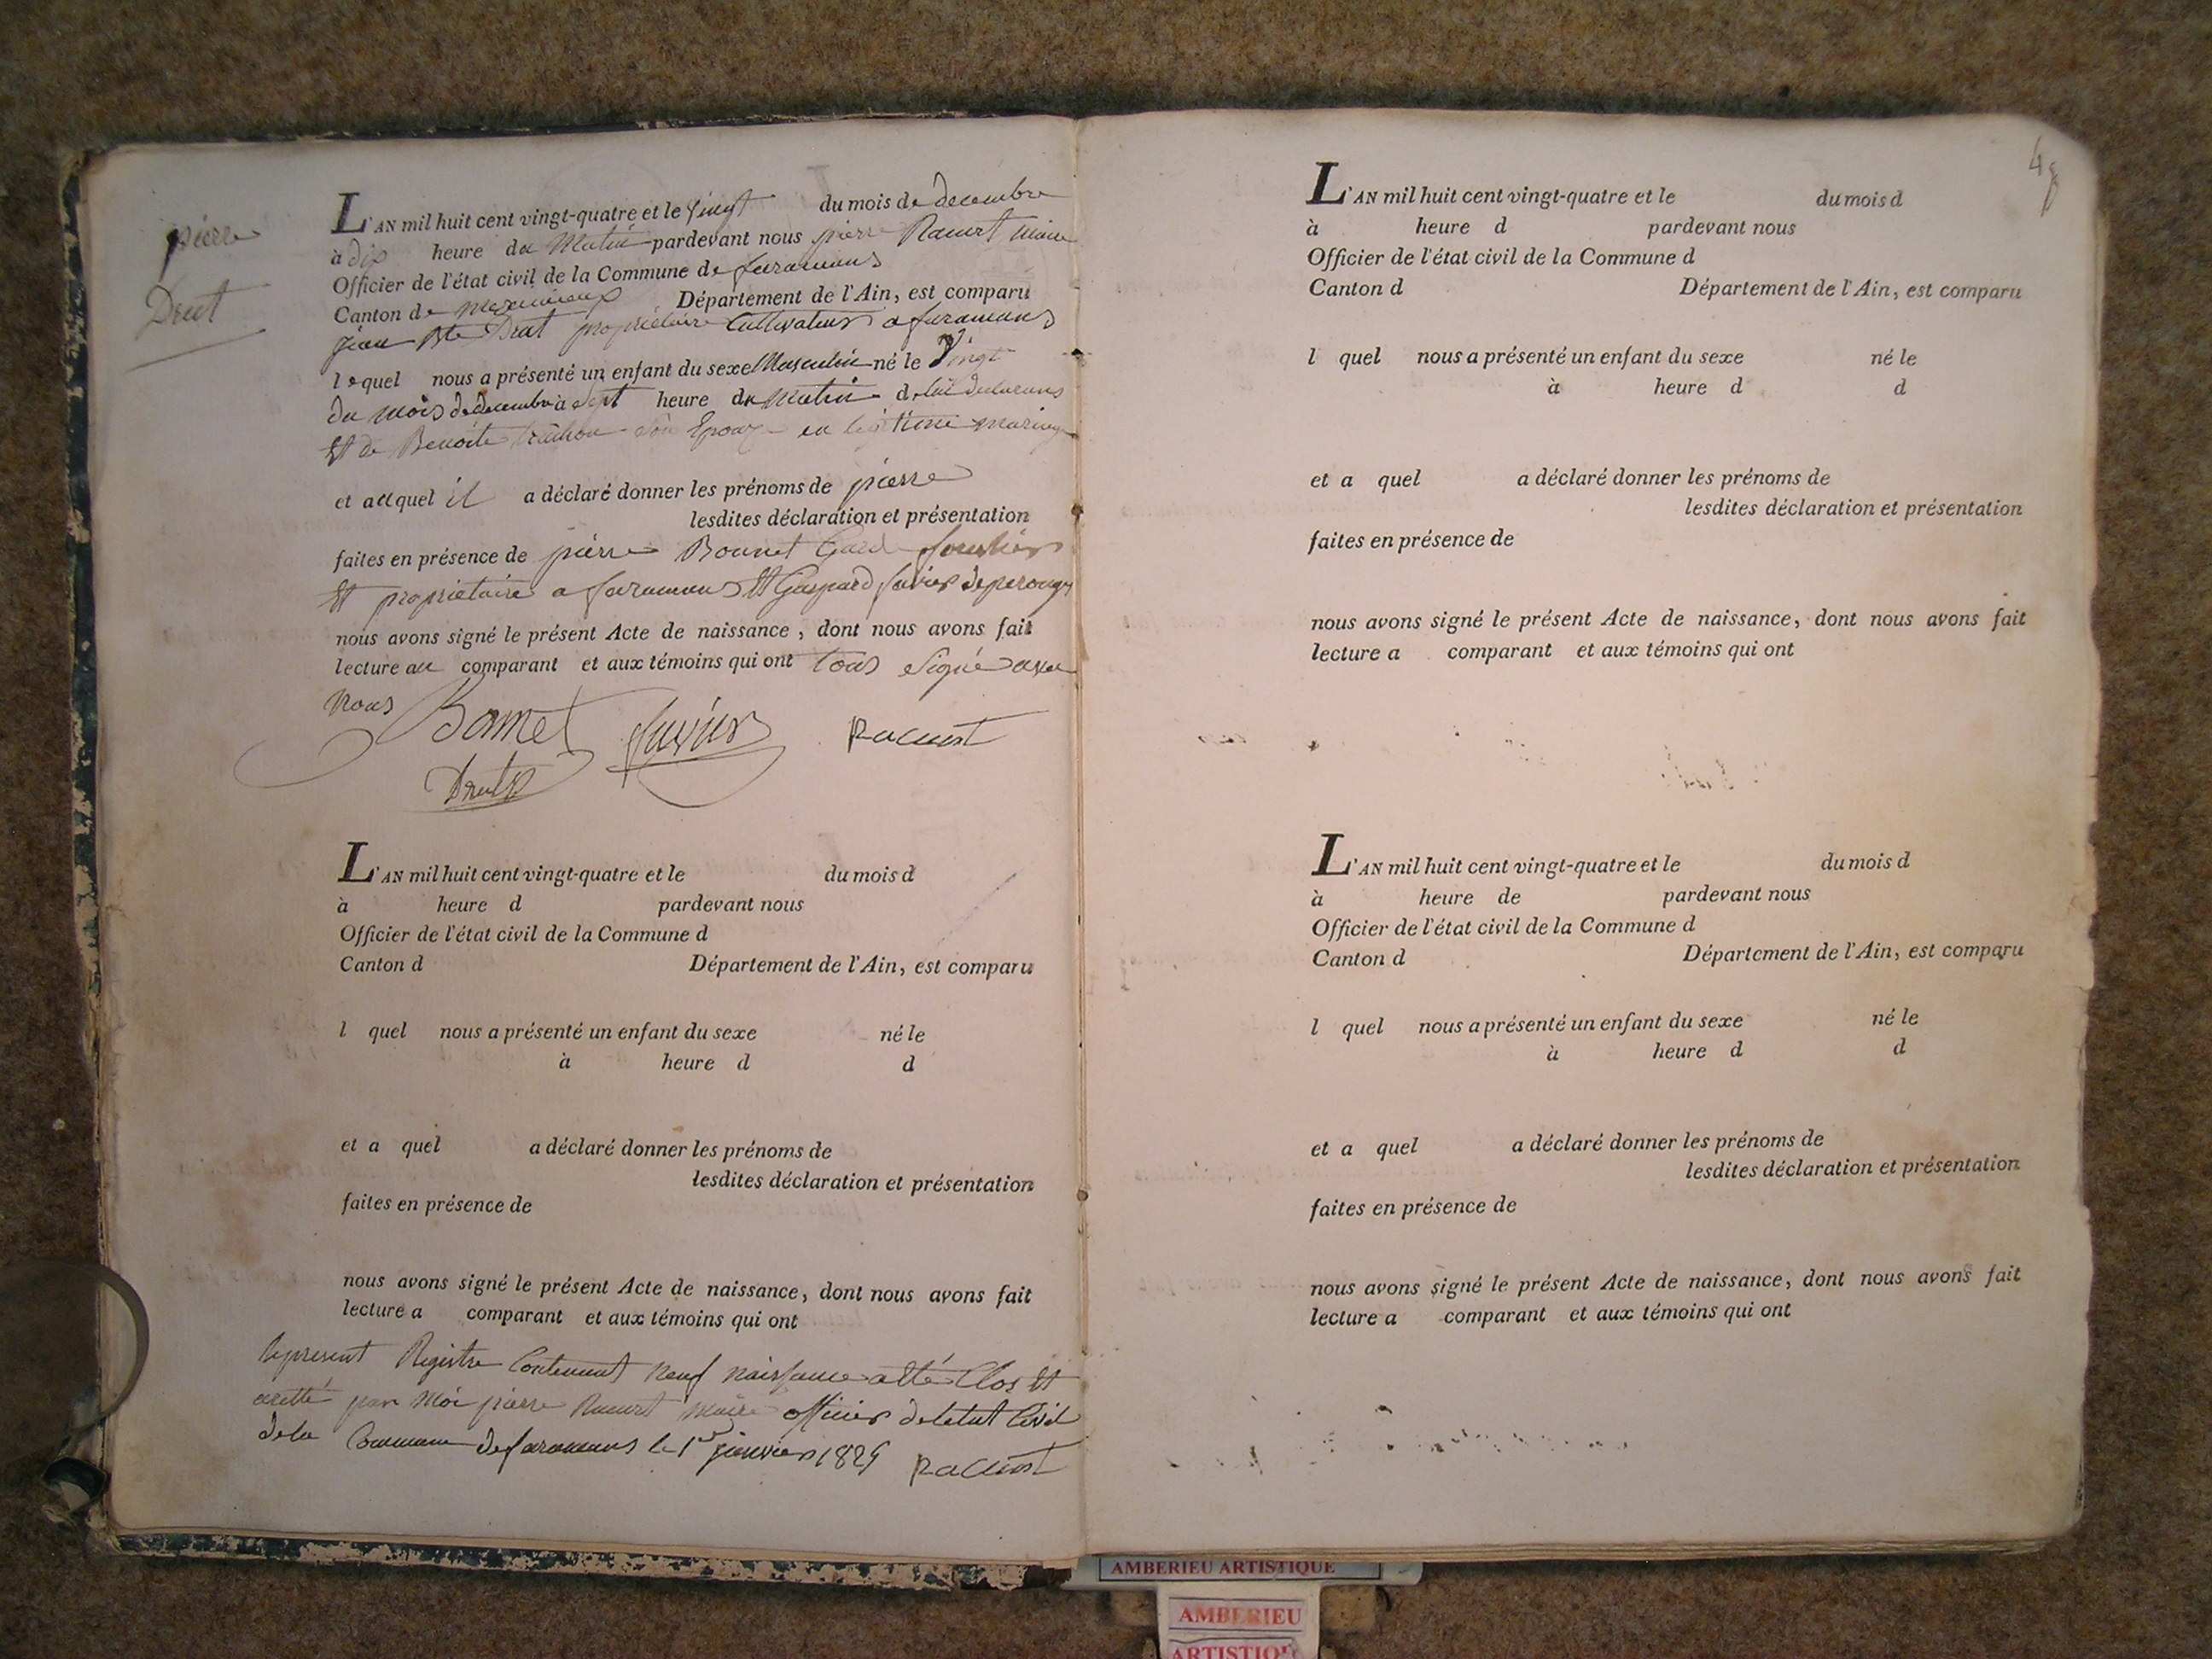 pierre
Drut
L'AN mil huit cent vingt-quatre et le vingt du mois de decembre
à dix heure du Matin pardevant nous pierre Racurt maire
Officier de l'état civil de la Commune de faramans
Canton de meximieux Département de l'Ain, est comparu
jean Bte Drut propriétaire Cultivateur a faramans
lequel nous a présenté un enfant du sexe Masculin né le Vingt
du mois de decembre à sept heure du Matin de lui declarans
Et de Benoite son Epouse en légitime mariage
et auquel il a déclaré donner les prénoms de pierre
lesdites déclaration et présentation
faites en présence de pierre Bonnet Garde forestier
Et propriétaire a faramans Et Gaspard favier de perouges
nous avons signé le présent Acte de naissance, dont nous avons fait
lecture au comparant et aux témoins qui ont tous signé avec
nous Bonnet favier Racurt
Drut
L'AN mil huit cent vingt-quatre et le du mois d
à heure d pardevant nous
Officier de l'état civil de la Commune d
Canton d Département de l'Ain, est comparu
l quel nous a présenté un enfant du sexe né le
à heure d d
et a quel a déclaré donner les prénoms de
lesdites déclaration et présentation
faites en présence de
nous avons signé le présent Acte de naissance, dont nous avons fait
lecture a comparant et aux témoins qui ont
le present Registre Contenant neuf naissance a été Clos Et
aretté par Moi pierre Racurt maire officier de letat Civil
de la Commune de faramans le 1er janvier 1825 Racurt
48
L'AN mil huit cent vingt-quatre et le du mois d
à heure d pardevant nous
Officier de l'état civil de la Commune d
Canton d Département de l'Ain, est comparu
l quel nous a présenté un enfant du sexe né le
à heure d d
et a quel a déclaré donner les prénoms de
lesdites déclaration et présentation
faites en présence de
nous avons signé le présent Acte de naissance, dont nous avons fait
lecture a comparant et aux témoins qui ont
L'AN mil huit cent vingt-quatre et le du mois d
à heure de pardevant nous
Officier de l'état civil de la Commune d
Canton d Département de l'Ain, est comparu
l quel nous a présenté un enfant du sexe né le
à heure d d
et a quel a déclaré donner les prénoms de
lesdites déclaration et présentation
faites en présence de
nous avons signé le présent Acte de naissance, dont nous avons fait
lecture a comparant et aux témoins qui ont
AMBERIEU ARTISTIQUE
AMBERIEU
ARTISTIQUE